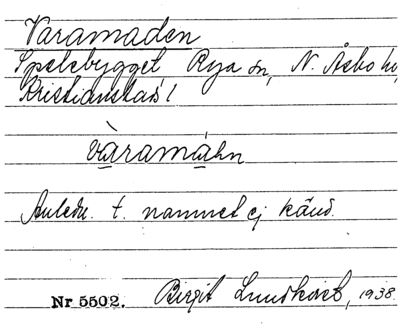 Varamaden
Spelebygget Rya sn, N. Åsbo hd,
Kristianstads l
vàramáhn
Anledn. t. namnet ej känd.
Nr 5502. Birgit Lundkvist, 1938.